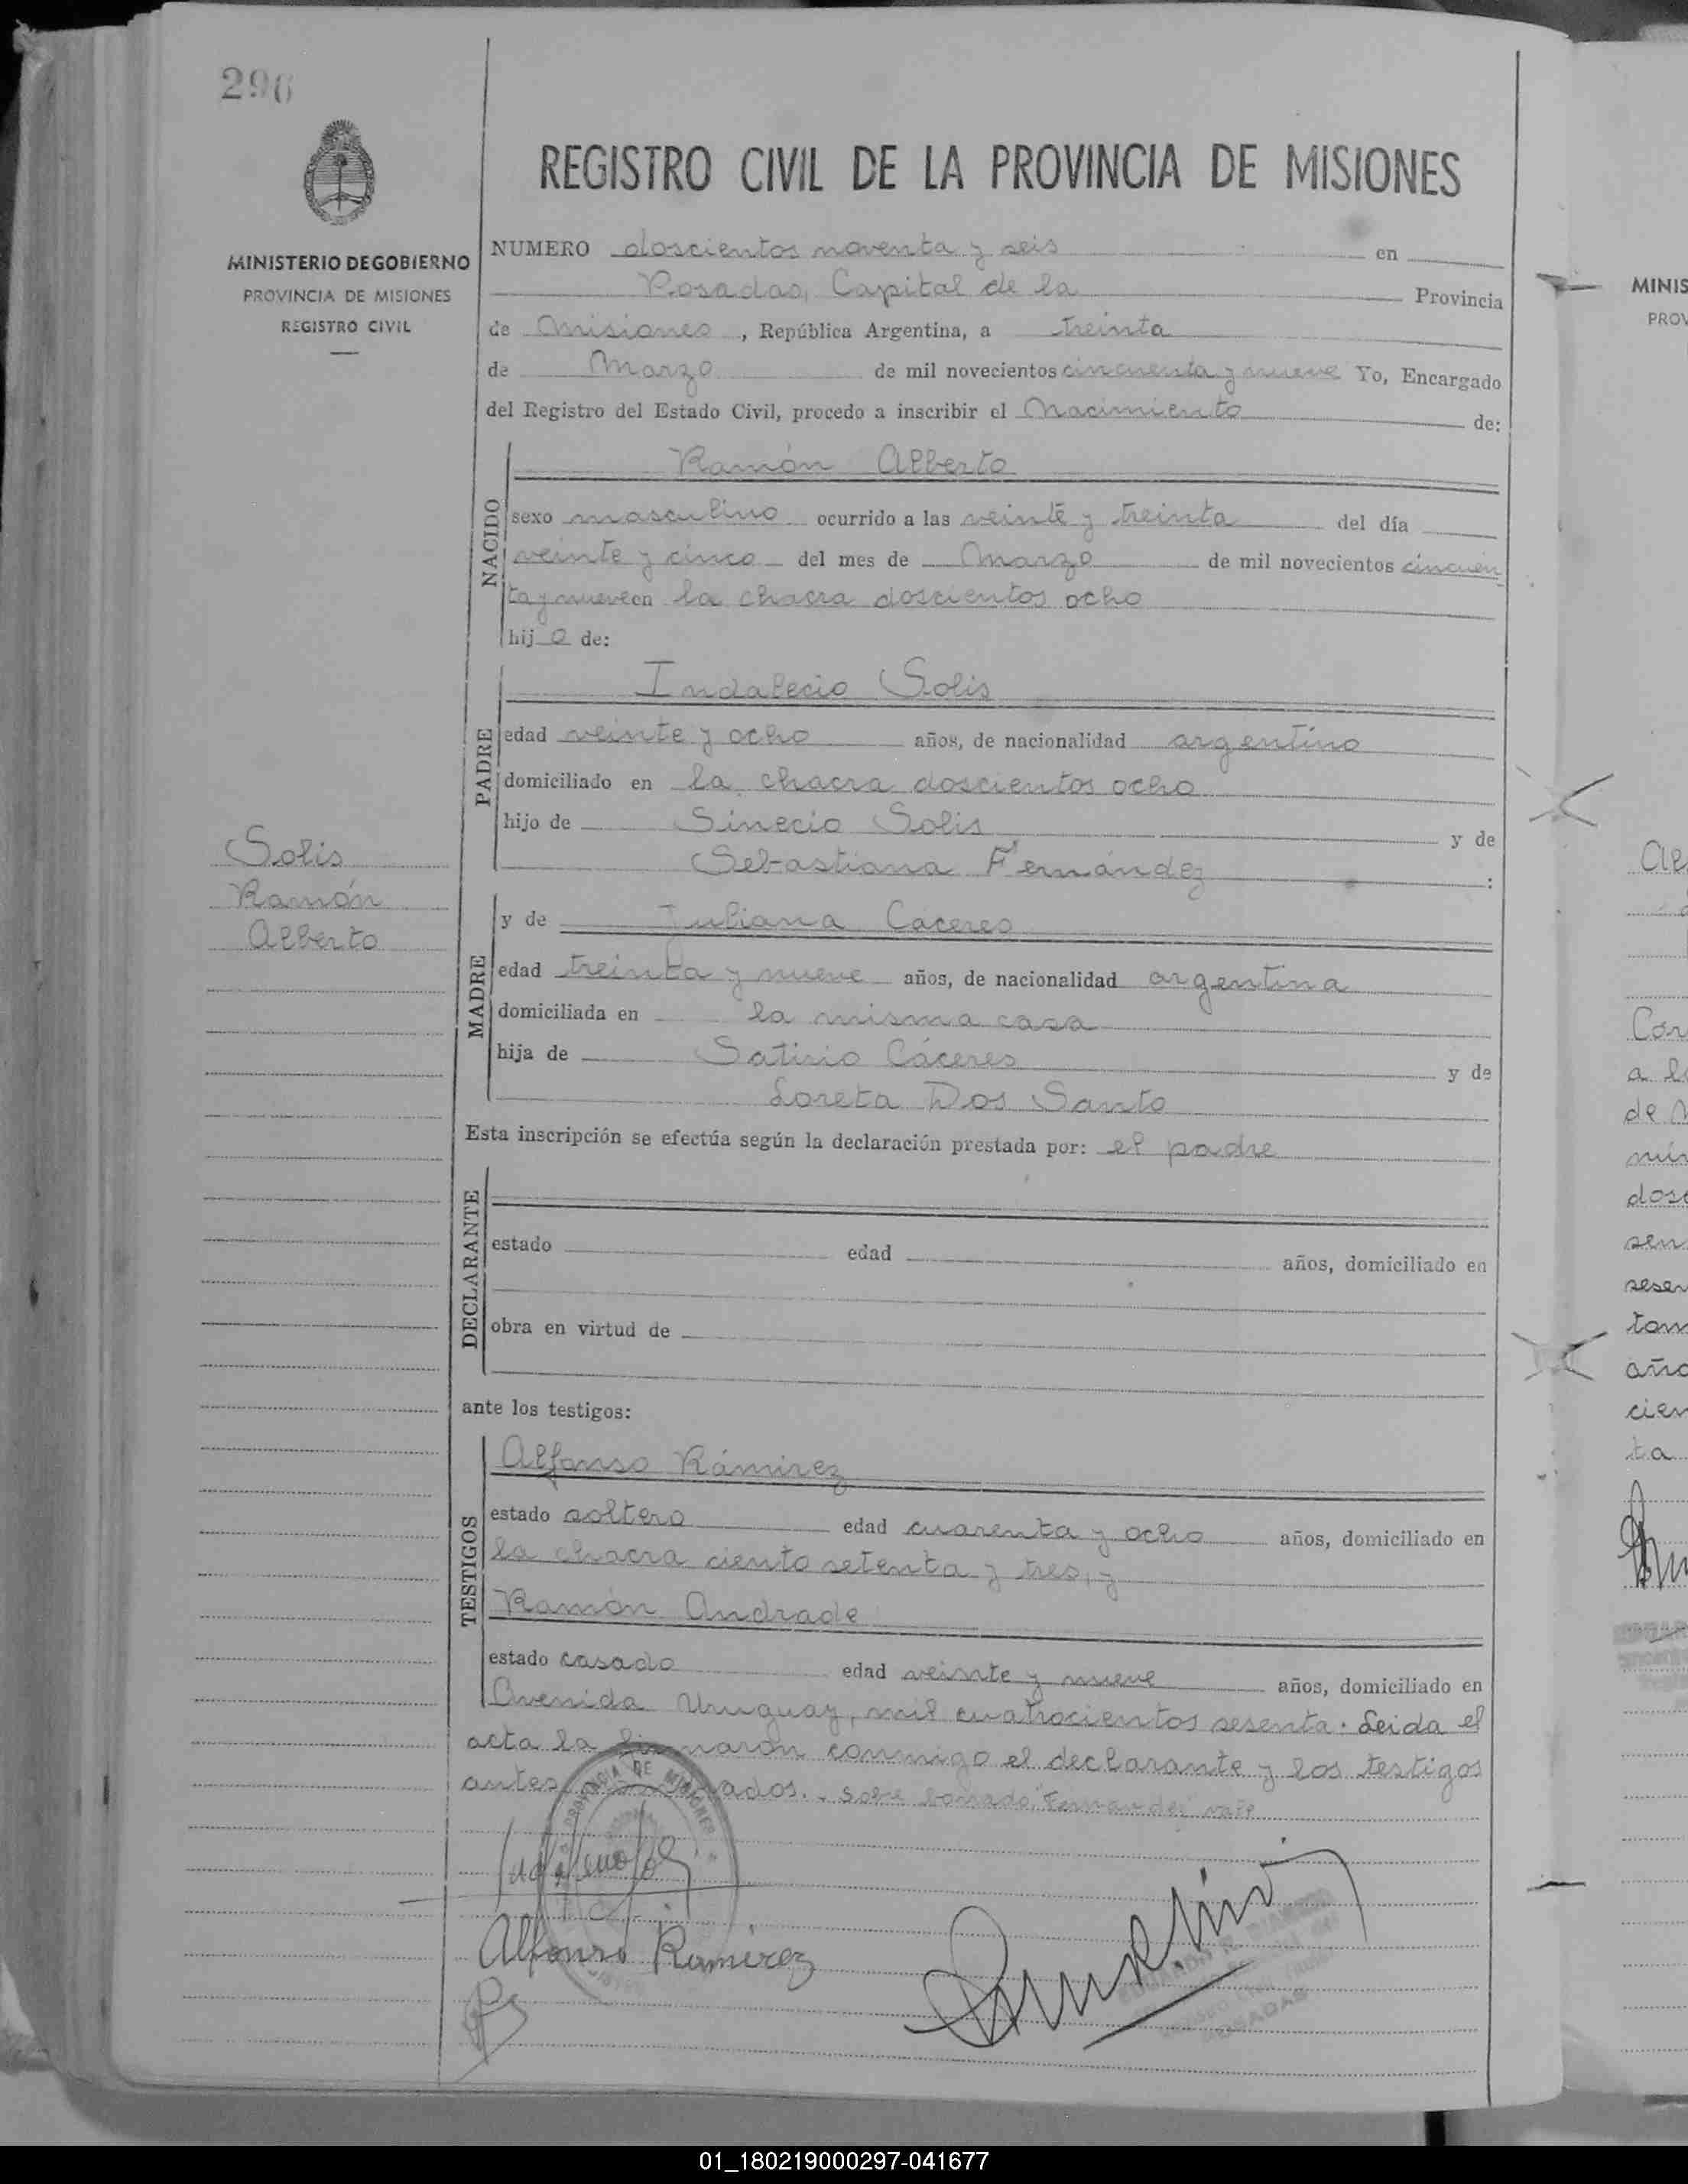 296
REGISTRO CIVIL DE LA PROVINCIA DE MISIONES
MINISTERIO DE GOBIERNO
PROVINCIA DE MISIONES
REGISTRO CIVIL
NUMERO doscientos noventa y seis en
Posadas, Capital de la Provincia
de Misiones, República Argentina, a treinta
de Marzo de mil novecientos cincuenta y nueve Yo, Encargado
del Registro del Estado Civil, procedo a inscribir el Nacimiento de:
NACIDO
Ramón Alberto
sexo masculino ocurrido a las veinte y treinta del día
veinte y cinco del mes de Marzo de mil novecientos cincuen
ta y nueve en la chacra doscientos ocho
hijo de:
PADRE
Indalecio Solis
edad veinte y ocho años, de nacionalidad argentino
domiciliado en la chacra doscientos ocho
hijo de Sinecio Solis y de
Sebastiana Fernández :
Solis
Ramón
Alberto
MADRE
y de Juliana Caceres
edad treinta y nueve años, de nacionalidad argentina
domiciliada en la misma casa
hija de Satirio Cáceres y de
Loreta Dos Santo
Esta inscripción se efectúa según la declaración prestada por: el padre
DECLARANTE
estado edad años, domiciliado en
obra en virtud de
ante los testigos:
TESTIGOS
Alfonso Rámirez
estado soltero edad cuarenta y ocho años, domiciliado en
la chacra ciento setenta y tres, y
Ramón Andrade
estado casado edad veinte y nueve años, domiciliado en
Avenida Uruguay, mil cuatrocientos sesenta. Leida el
acta la firmaron conmigo el declarante y los testigos
antes ados. Sobre borrado "Fernandez" vale
PROVINCIA DE MISIONES
Alfonso Ramirez
POSADAS
MINIS
PROV
01_180219000297-041677